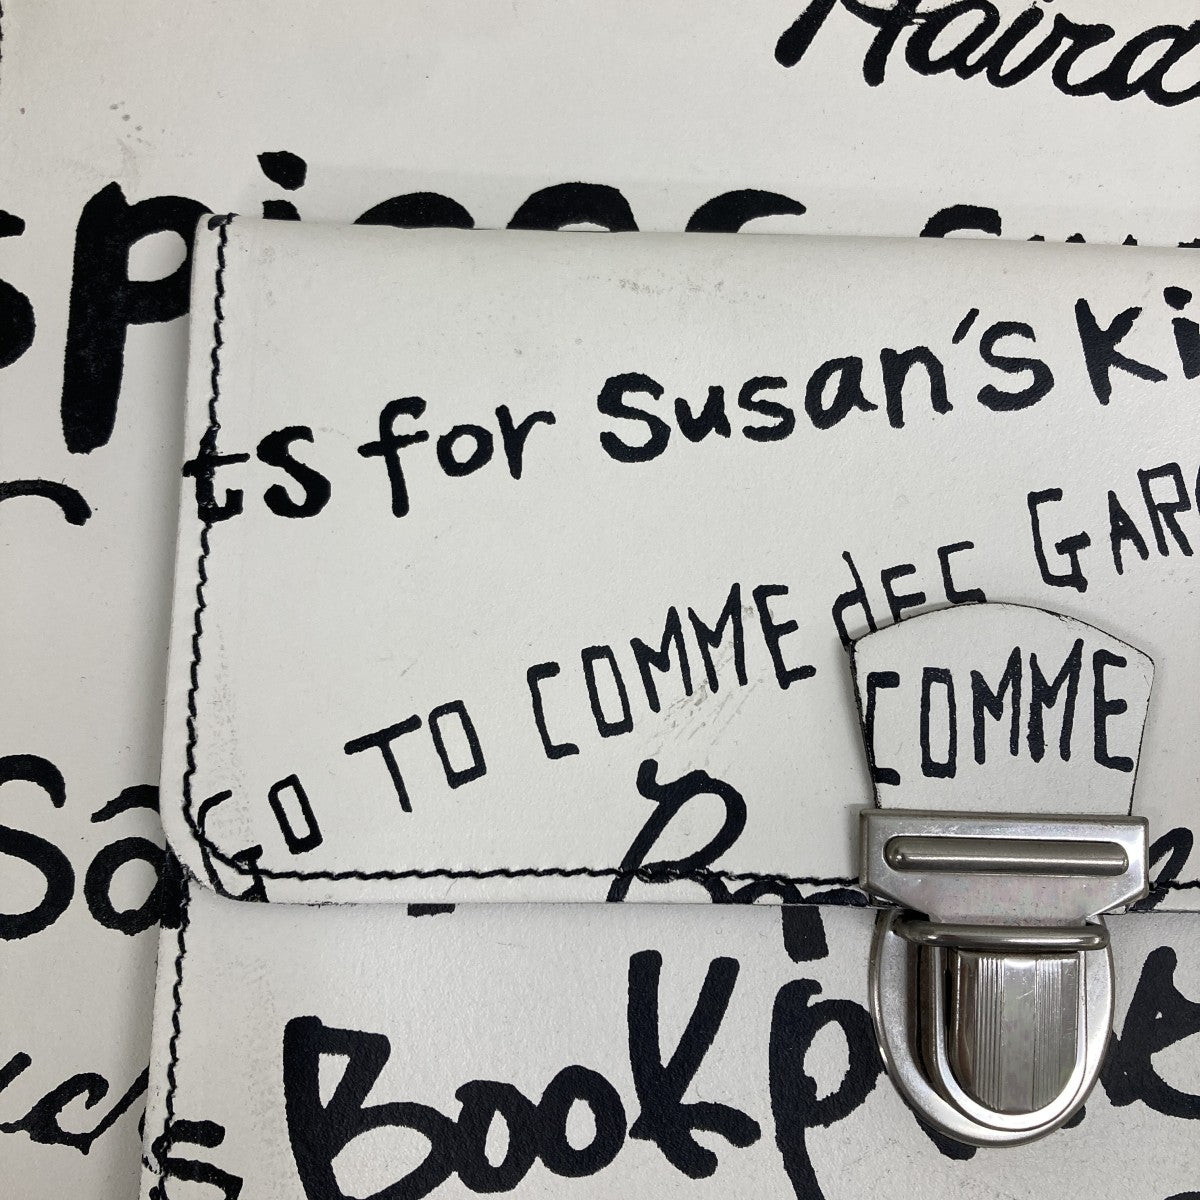 Haird
spices
ts for Susan's Ki
GO TO COMME dES GARC
COMME
Sa
Book